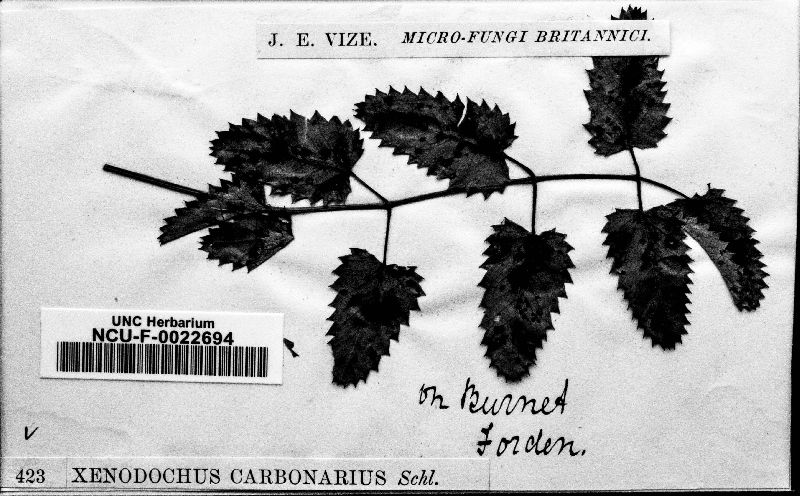 J. E. VIZE. MICRO-FUNGI BRITANNICI.
UNC Herbarium
NCU-F-0022694
on Burnet
Forden.
423 XENODOCHUS CARBONARIUS Schl.